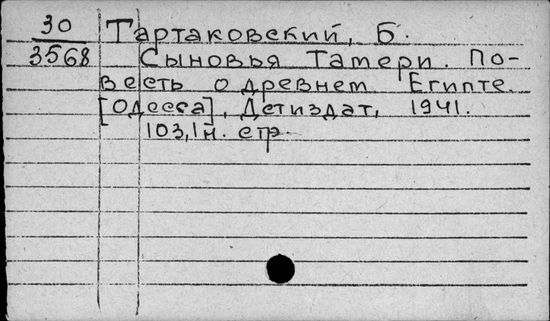 30 Тартаковский, Б.
3568 Сыновья Татери. По-
весть о древнем Египте.
[Одесса], Детиздат, 1941.
103,1н. стр.